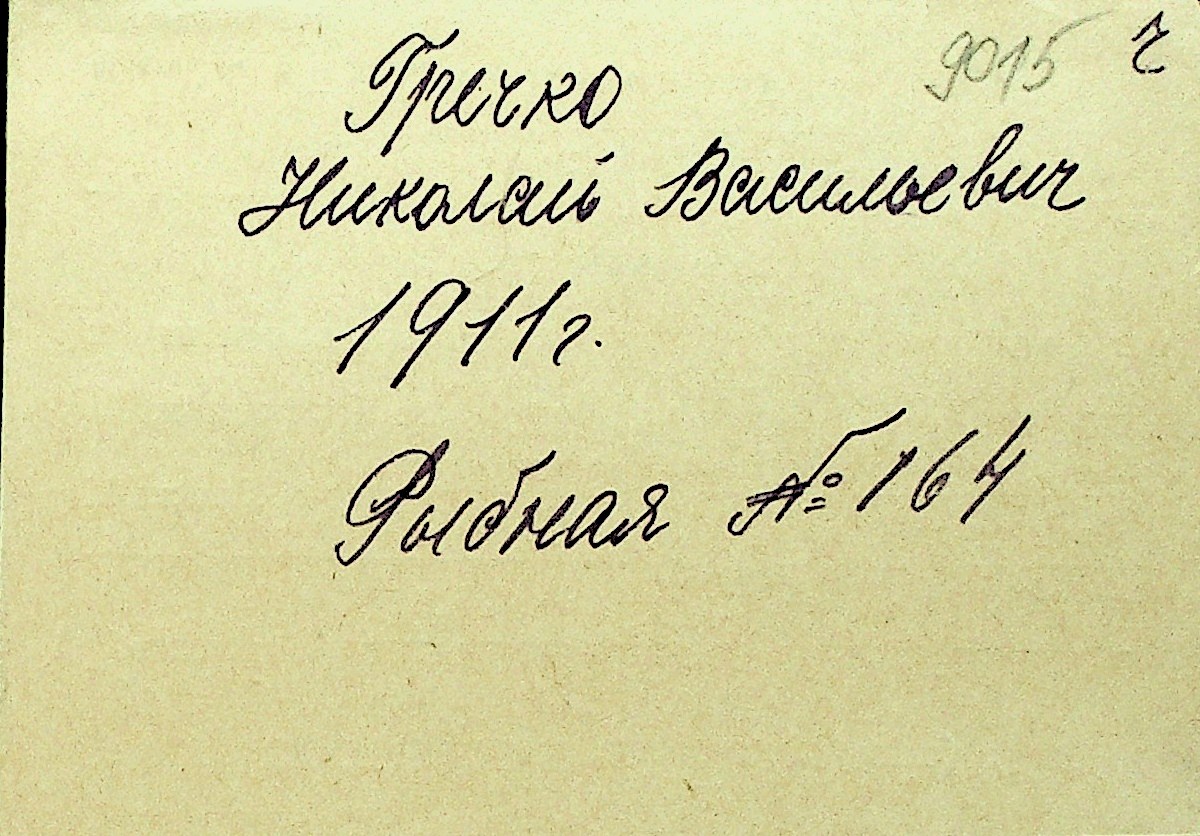 9015 г
Гречко
Николай Васильевич
1911г.
Рыбная № 164